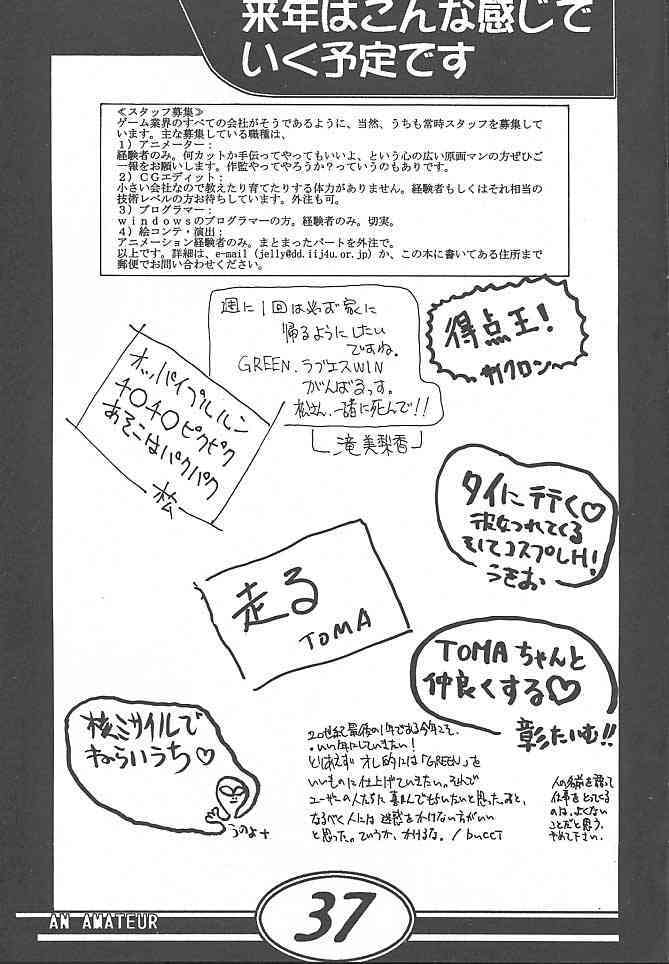 来年はこんな感じで
いく予定です
≪スタッフ募集≫
ゲーム業界のすべての会社がそうであるように、当然、うちも常時スタッフを募集して
います。主な募集している職種は、
1）アニメーター：
経験者のみ。何カットか手伝ってやってもいいよ、という心の広い原画マンの方ぜひご
一報をお願いします。作監やってやろうか？っていうのもありです。
2）CGエディット：
小さい会社なので教えたり育てたりする体力がありません。経験者もしくはそれ相当の
技術レベルの方お待ちしています。外注も可。
3）プログラマー：
windowsのプログラマーの方。経験者のみ。切実。
4）絵コンテ・演出：
アニメーション経験者のみ。まとまったパートを外注で。
以上です。詳細は、e-mail (jelly@dd.iij4u.or.jp)か、この本に書いてある住所まで
郵便でお問い合わせください。
週に1回は必ず家に
帰るようにしたい
ですね。
GREEN、ラブエスWIN
がんばるっす。
松さん、一緒に死んで!!
滝美梨香
得点王!
サイクロン
オッパイプルルン
4040ピクピク
あそこはパクパク
松
タイに行く♡
彼女つれてくる
そしてコスプレH!
うきお
走る
TOMA
TOMAちゃんと
仲良くする♡
彰たいむ!!
核ミサイルで
ねらいうち♡
うのよ+
20世紀最後の1年である今年こそ、
いい年にしていきたい!
とりあえず オレ的には「GREEN」を
いいものに仕上げていきたい。そんで
ユーザーの人たちに喜んでもらいたいと思った。あと、
なるべく人には迷惑をかけない方がいい
と思った。ていうか、かけるな。/bucci
人の名前を語って
仕事をとってくる
のは、よくない
ことだと思う。
やめて下さい。
AN AMATEUR
37